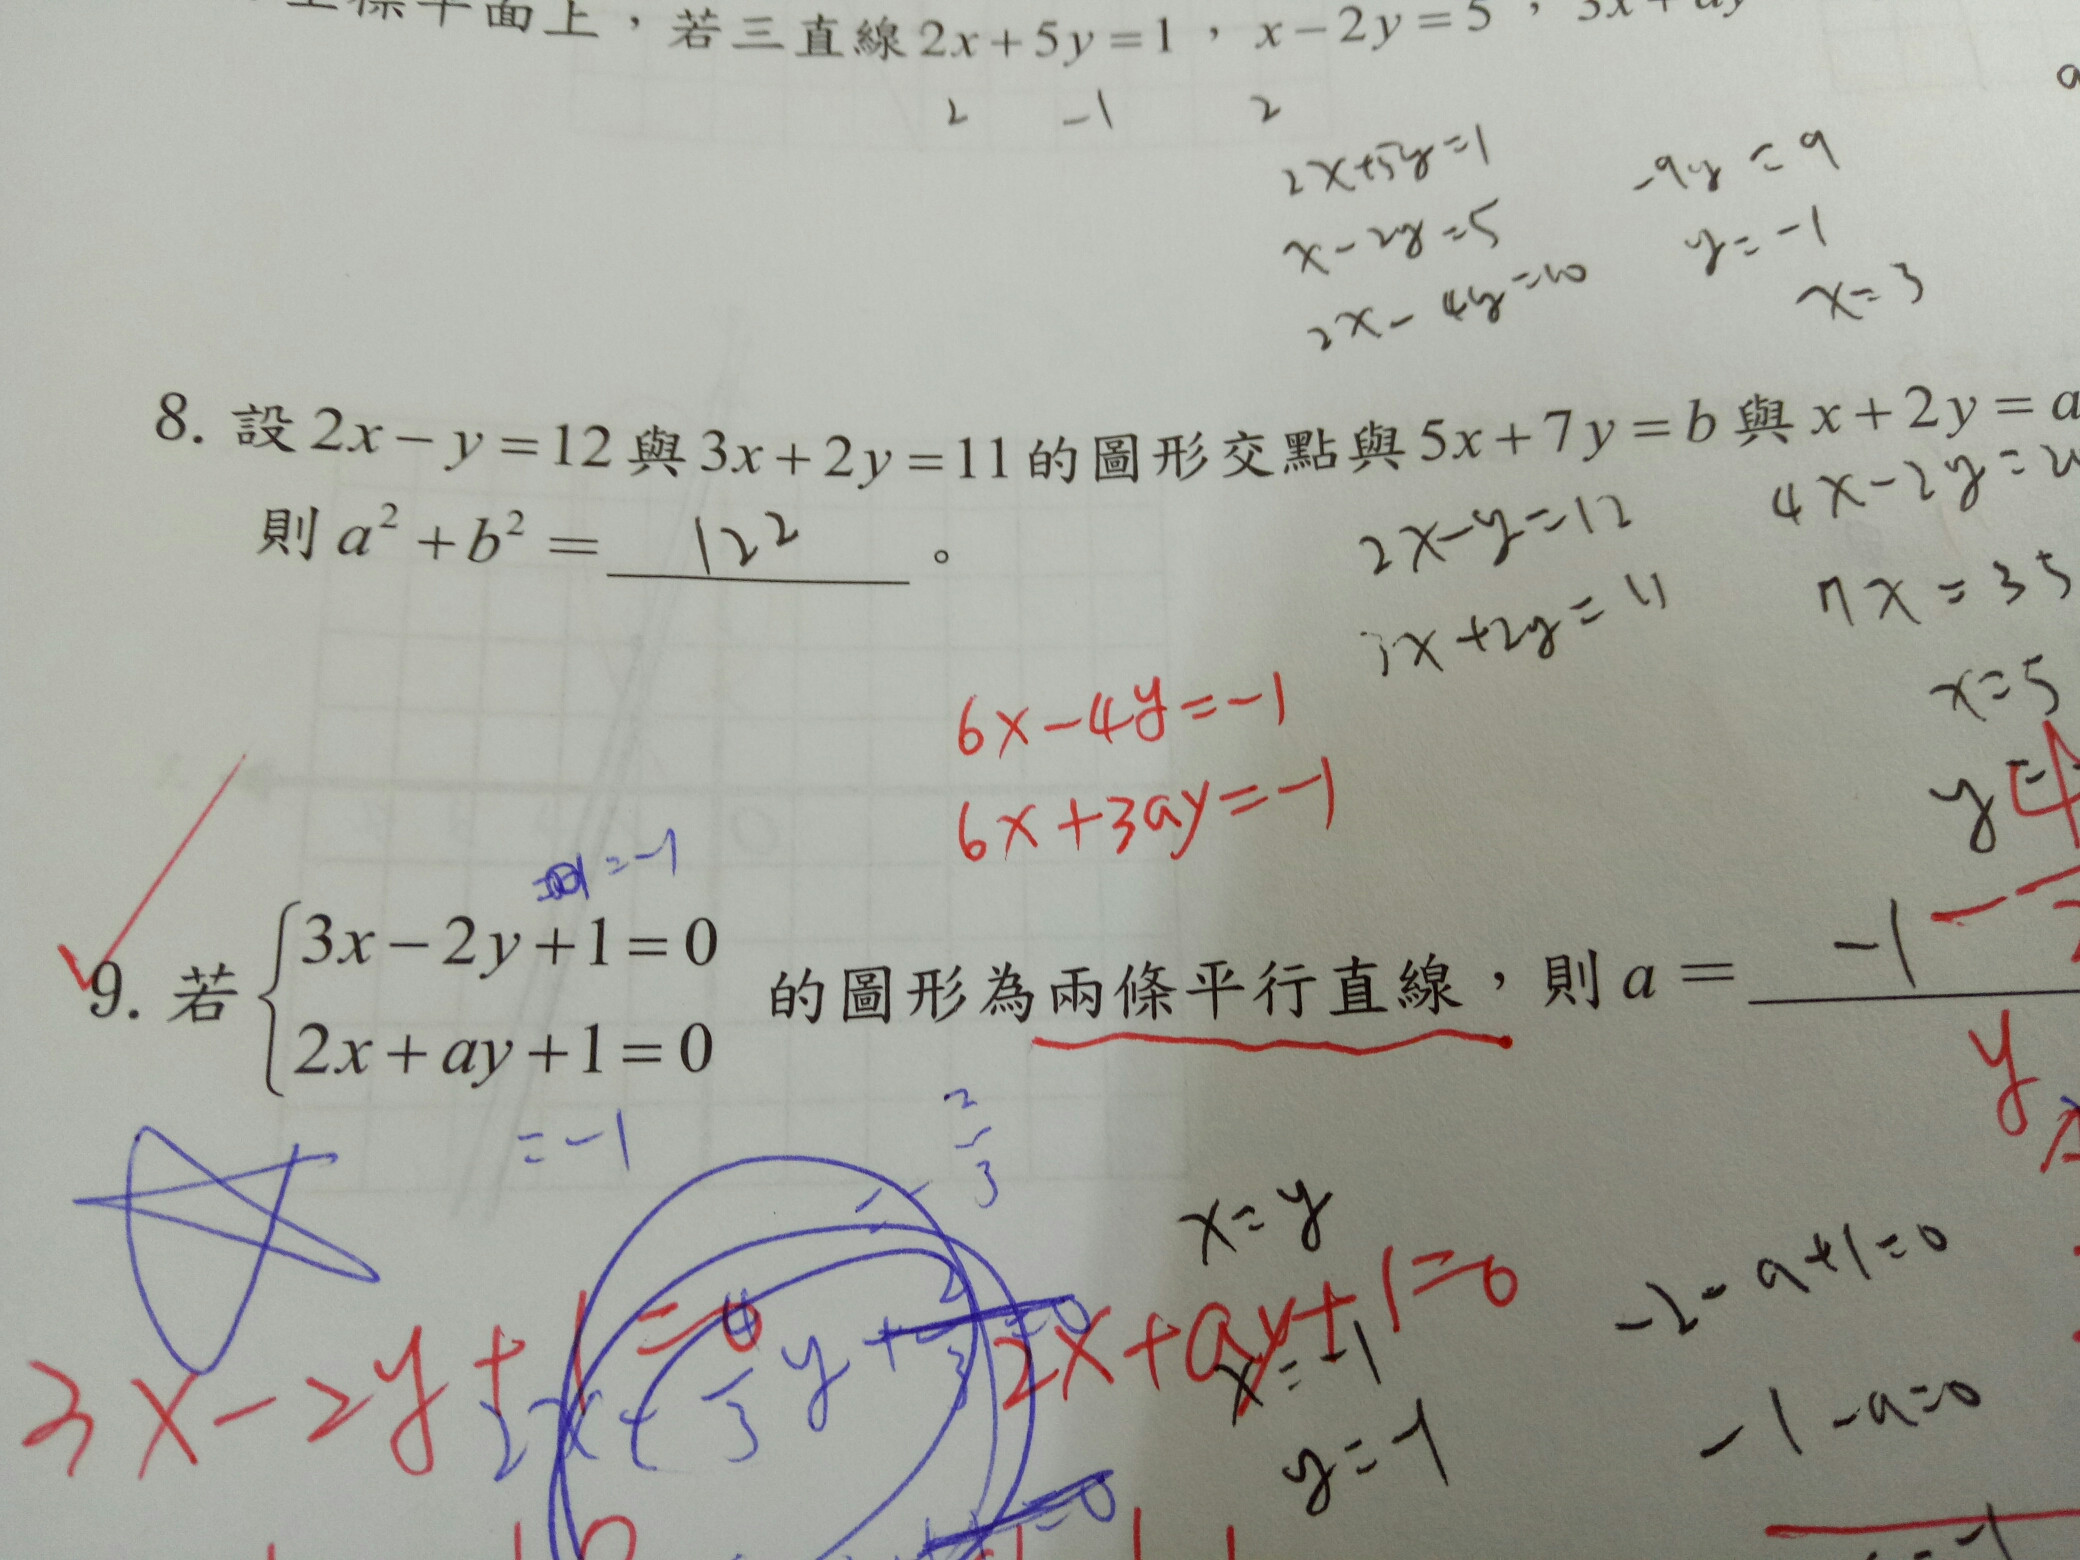 標平面上，若三直線2x+5y=1，x-2y=5，3x+ay
2 -1 2
2x+5y=1 -9y=9
x-2y=5 y=-1
2x-4y=10 x=3
8. 設2x-y=12與3x+2y=11的圖形交點與5x+7y=b與x+2y=a
則a²+b²=122。
2x-y=12 4x-2y=2
3x+2y=11 7x=35
x=5
6x-4y=-1
6x+3ay=-1
y=-
=-1
9. 若{3x-2y+1=0
2x+ay+1=0 的圖形為兩條平行直線，則a=-1
=-1
2/3
y
x=y
-2-a+1=0
3x-2y+1=0 2x+ay+1=0
x=-1
y=-1
-1-a=0